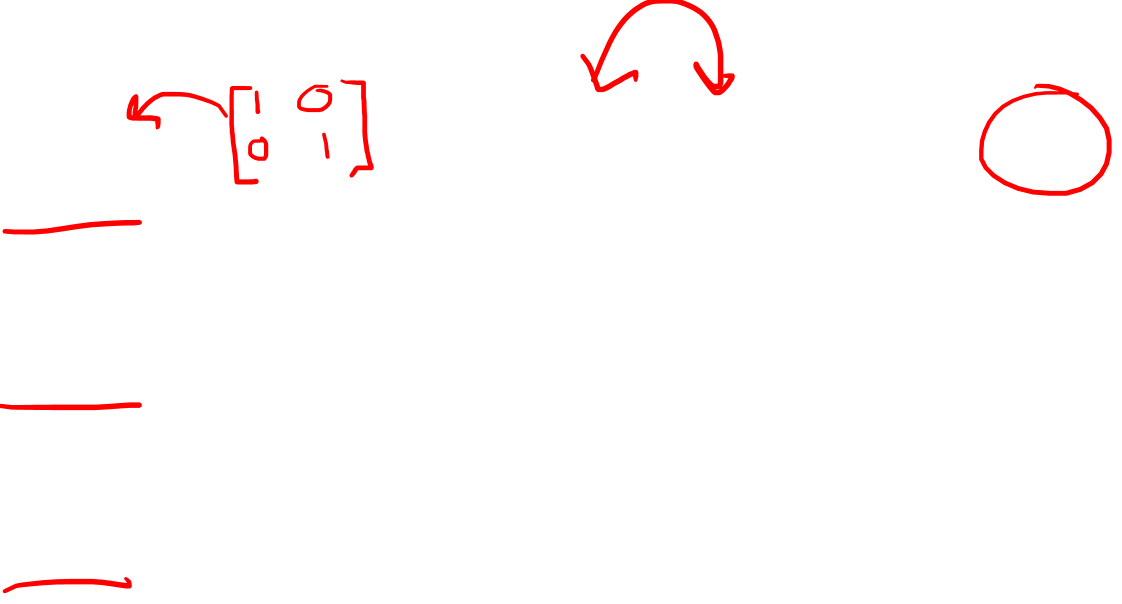 [1 0
0 1]